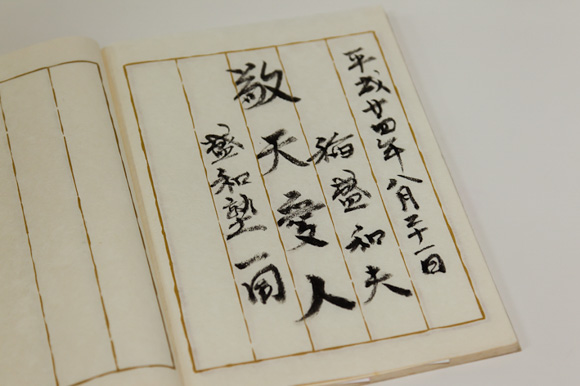 平成廿四年八月二十一日
稲盛和夫
敬天愛人
盛和塾一同